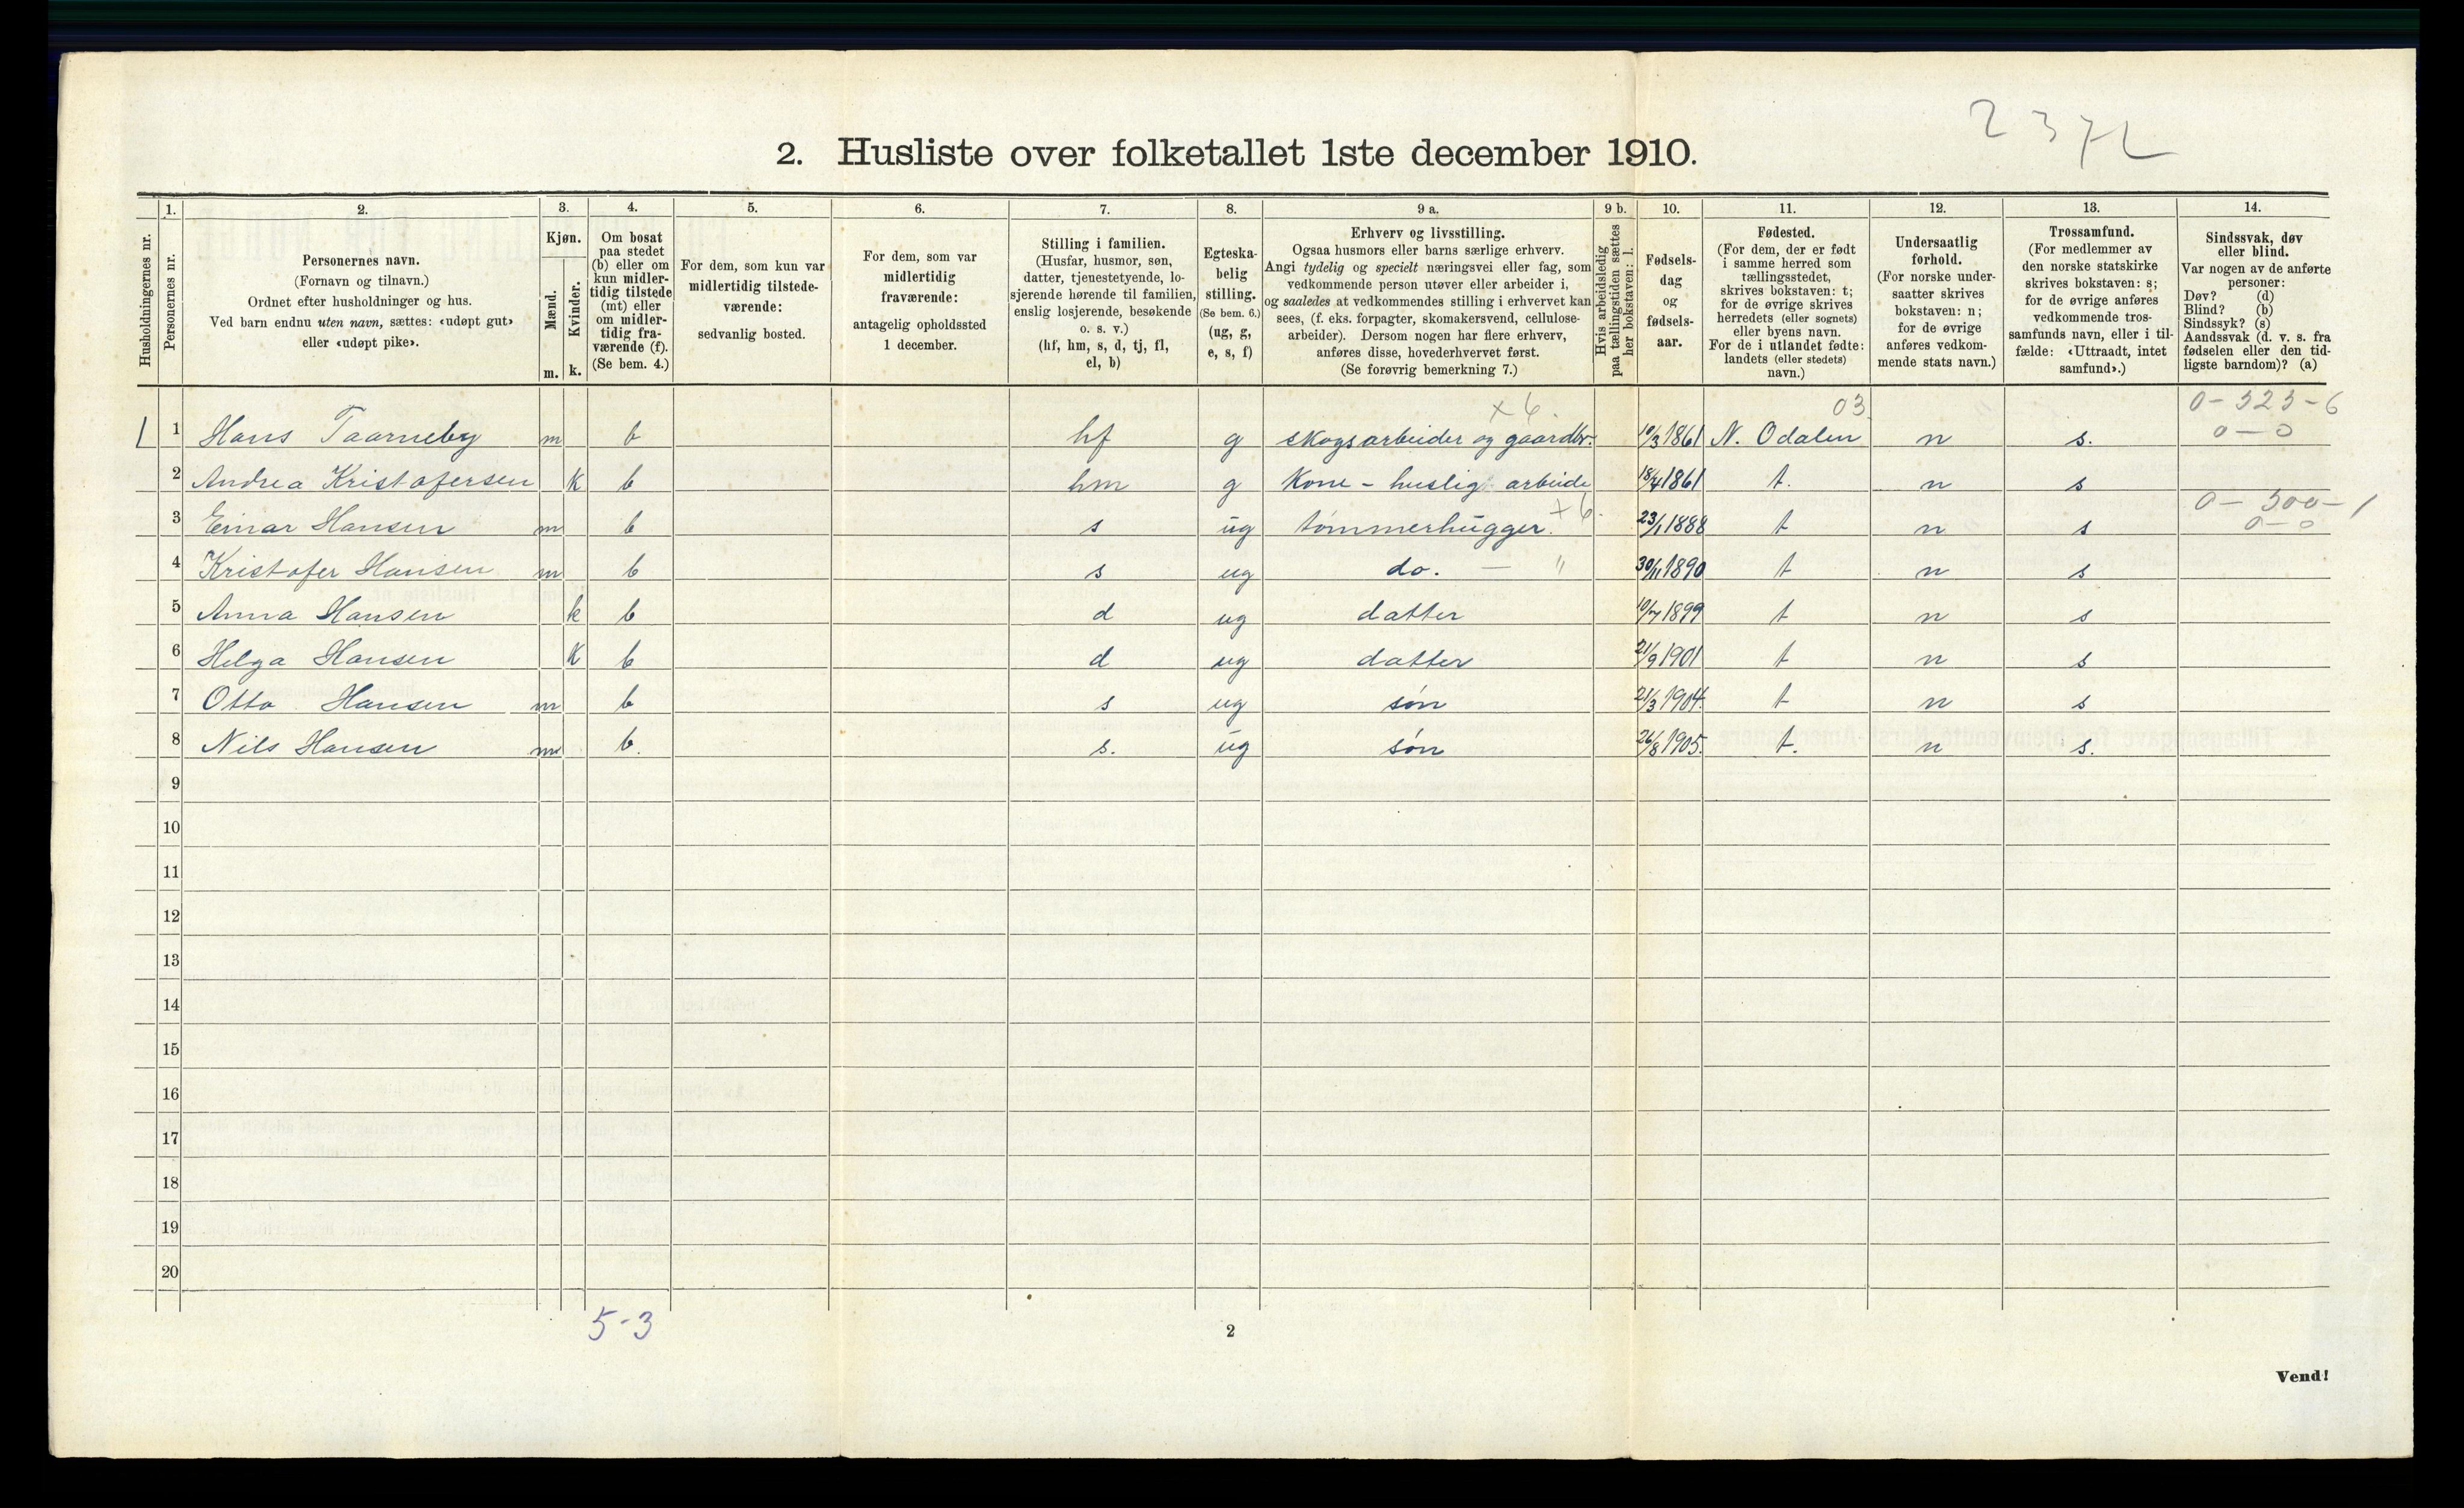 2372
2. Husliste over folketallet 1ste december 1910.
Husholdningernes nr.
1. Personernes nr.
2. Personernes navn.
(Fornavn og tilnavn.)
Ordnet efter husholdninger og hus.
Ved barn endnu uten navn, sættes: «udøpt gut»
eller «udøpt pike».
3. Kjøn.
Mænd. m.
Kvinder. k.
4. Om bosat
paa stedet
(b) eller om
kun midler-
tidig tilstede
(mt) eller
om midler-
tidig fra-
værende (f).
(Se bem. 4.)
5. For dem, som kun var
midlertidig tilstede-
værende:
sedvanlig bosted.
6. For dem, som var
midlertidig
fraværende:
antagelig opholdssted
1 december.
7. Stilling i familien.
(Husfar, husmor, søn,
datter, tjenestetyende, lo-
sjerende hørende til familien,
enslig losjerende, besøkende
o. s. v.)
(hf, hm, s, d, tj, fl,
el, b)
8. Egteska-
belig
stilling.
(Se bem. 6.)
(ug, g,
e, s, f)
9 a. Erhverv og livsstilling.
Ogsaa husmors eller barns særlige erhverv.
Angi tydelig og specielt næringsvei eller fag, som
vedkommende person utøver eller arbeider i,
og saaledes at vedkommendes stilling i erhvervet kan
sees, (f. eks. forpagter, skomakersvend, cellulose-
arbeider). Dersom nogen har flere erhverv,
anføres disse, hovederhvervet først.
(Se forøvrig bemerkning 7.)
9 b. Hvis arbeidsledig
paa tællingstiden sættes
her bokstaven: l.
10. Fødsels-
dag
og
fødsels-
aar.
11. Fødested.
(For dem, der er født
i samme herred som
tællingsstedet,
skrives bokstaven: t;
for de øvrige skrives
herredets (eller sognets)
eller byens navn.
For de i utlandet fødte:
landets (eller stedets)
navn.)
12. Undersaatlig
forhold.
(For norske under-
saatter skrives
bokstaven: n;
for de øvrige
anføres vedkom-
mende stats navn.)
13. Trossamfund.
(For medlemmer av
den norske statskirke
skrives bokstaven: s;
for de øvrige anføres
vedkommende tros-
samfunds navn, eller i til-
fælde: «Uttraadt, intet
samfund».)
14. Sindssvak, døv
eller blind.
Var nogen av de anførte
personer:
Døv? (d)
Blind? (b)
Sindssyk? (s)
Aandssvak (d. v. s. fra
fødselen eller den tid-
ligste barndom)? (a)
x 6. 03 0-323-6
1 1 Hans Taarneby m b hf g skogsarbeider og gaardbr. 10/3 1861 N. Odalen n s. 0-0
2 Andrea Kristofersen k b hm g Kone - huslig arbeide 18/4 1861 t. n s
x 6. 0-300-1
3 Einar Hansen m b s ug tømmerhugger. 23/1 1888 t n s 0-0
4 Kristofer Hansen m b s ug do. — " 30/11 1890 t n s
5 Anna Hansen k b d ug datter 10/7 1899 t n s
6 Helga Hansen k b d ug datter 21/9 1901 t n s
7 Otto Hansen m b s ug søn 21/3 1904 t n s
8 Nils Hansen m b. s. ug søn 26/8 1905. t. n s.
9
10
11
12
13
14
15
16
17
18
19
20
5-3
2
Vend!